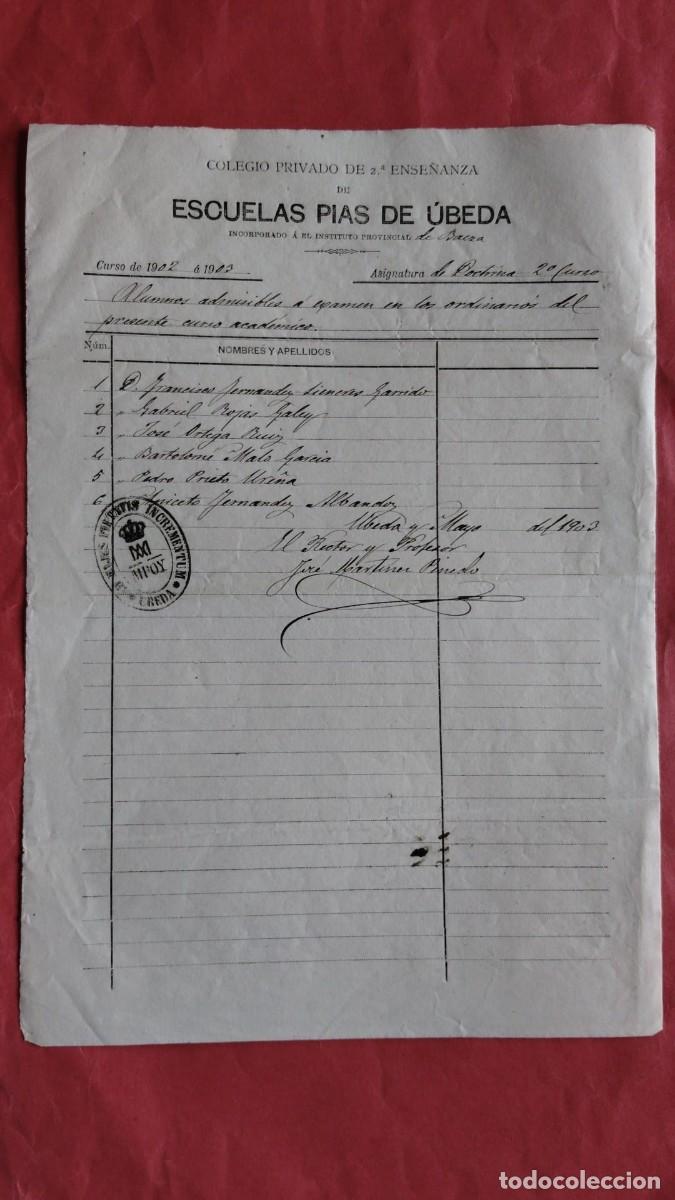 COLEGIO PRIVADO DE 2.ª ENSEÑANZA
DE
ESCUELAS PIAS DE ÚBEDA
INCORPORADO Á EL INSTITUTO PROVINCIAL de Baeza
Curso de 1902 á 1903 Asignatura de Doctrina 2º Curso
Alumnos admisibles a examen en los ordinarios del
presente curso académico.
Núm. NOMBRES Y APELLIDOS
1 D. Francisco Fernandez-Lieneres Garrido
2 " Gabriel Rojas Galey
3 " José Ortega Ruiz
4 " Bartolomé Mala Garcia
5 " Pedro Prieto Ureña
6 Aniceto Fernandez Albandoz
Ubeda y Mayo del 1903
El Rector y Profesor
José Martinez Pinedo
PIETATIS INCREMENTUM
UBEDA
todocoleccion